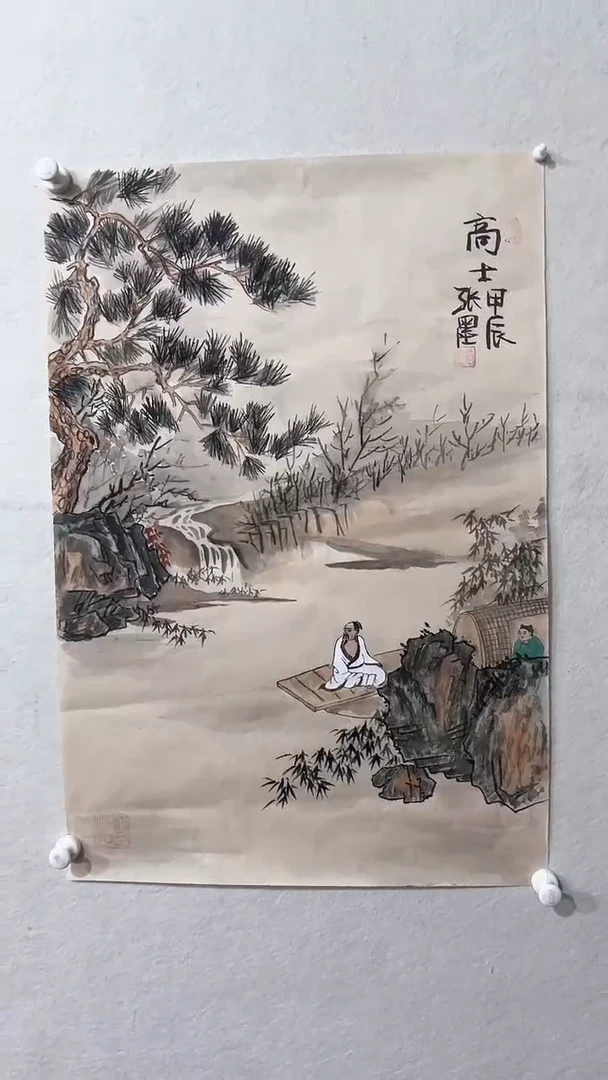 高士
甲辰
张墨